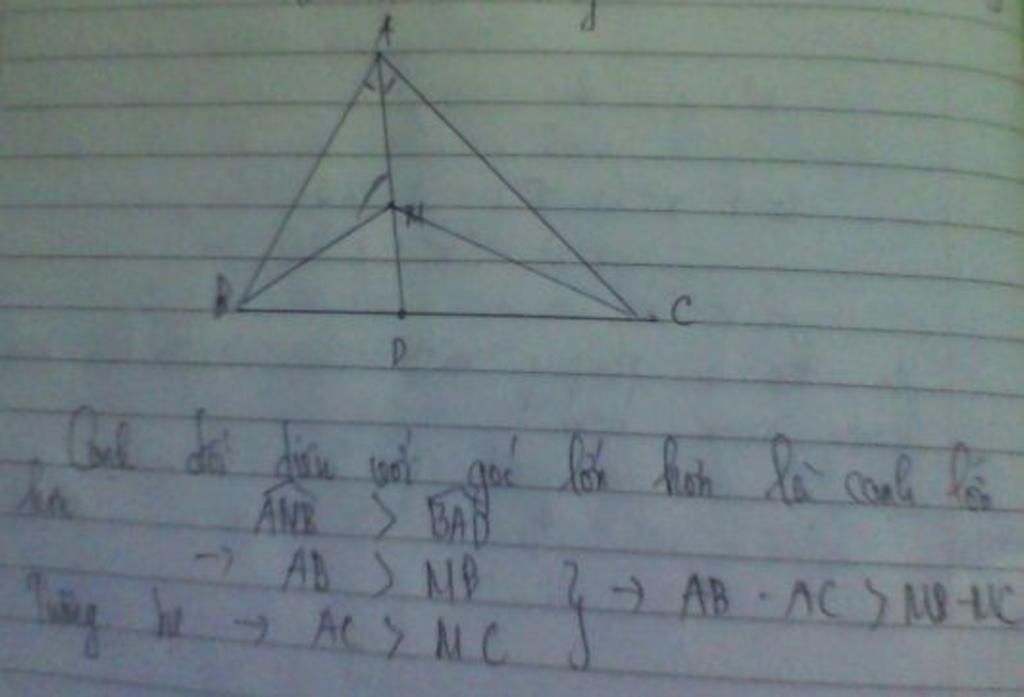 A
M
B
C
D
Cạnh đối diện với góc lớn hơn là cạnh lớn
hơn
AMB > BAD
→ AB > MB
} → AB - AC > MB - MC
Tương tự → AC > MC